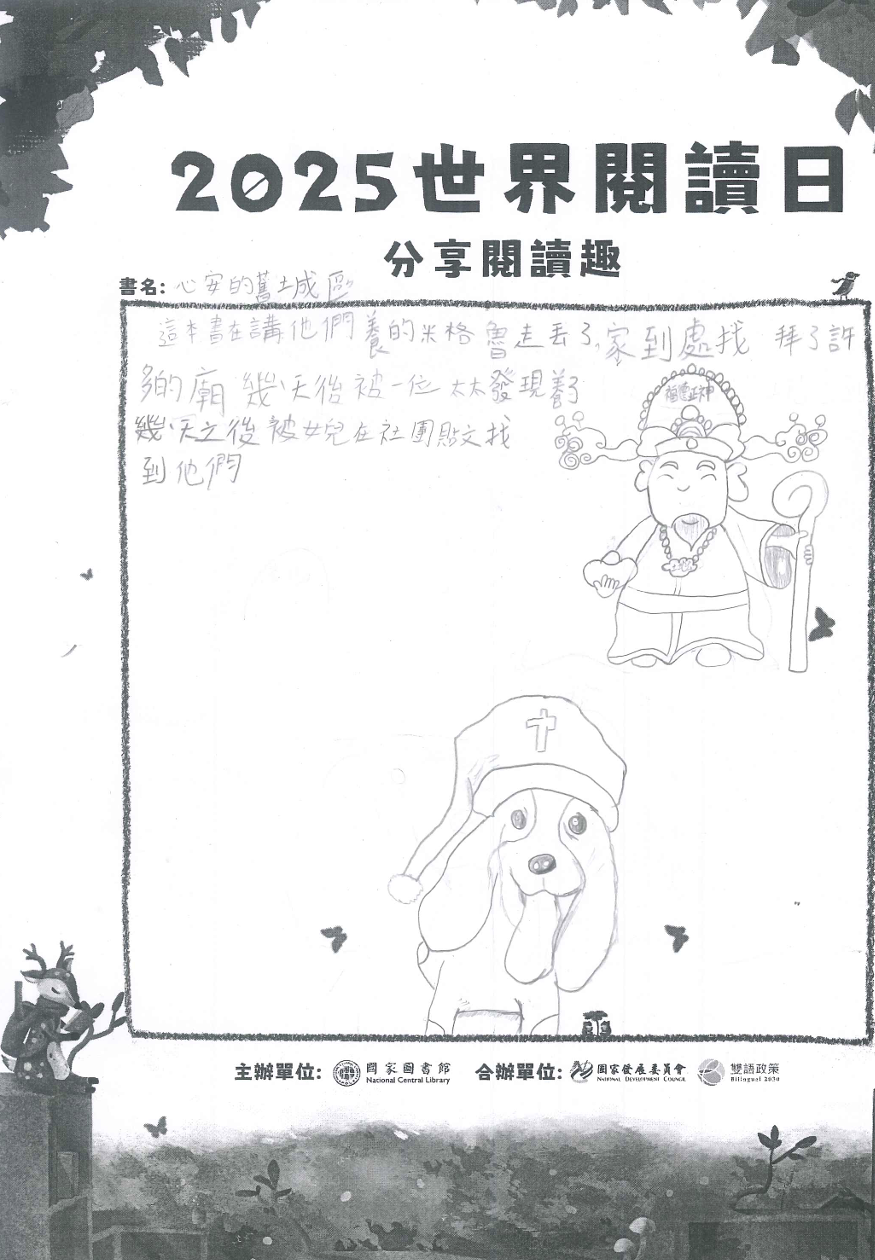 2025世界閱讀日
分享閱讀趣
書名: 心安的舊城區
這本書在講他們養的米格魯走丟了,家到處找 拜了許
多的廟 幾天後被一位太太發現養了
幾天之後被女兒在社團貼文找
到他們
福德正神
主辦單位: 國家圖書館 National Central Library 合辦單位: 國家發展委員會 National Development Council 雙語政策 Bilingual 2030